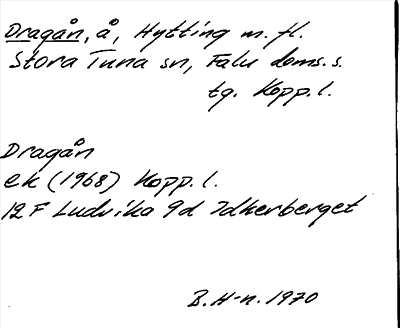 Dragån, å, Hytting m.fl.
Stora Tuna sn, Falu doms.s.
tg. Kopp.l.
Dragån
ek (1968) Kopp.l.
12F Ludvika 9d Idkerberget
B. H-n. 1970